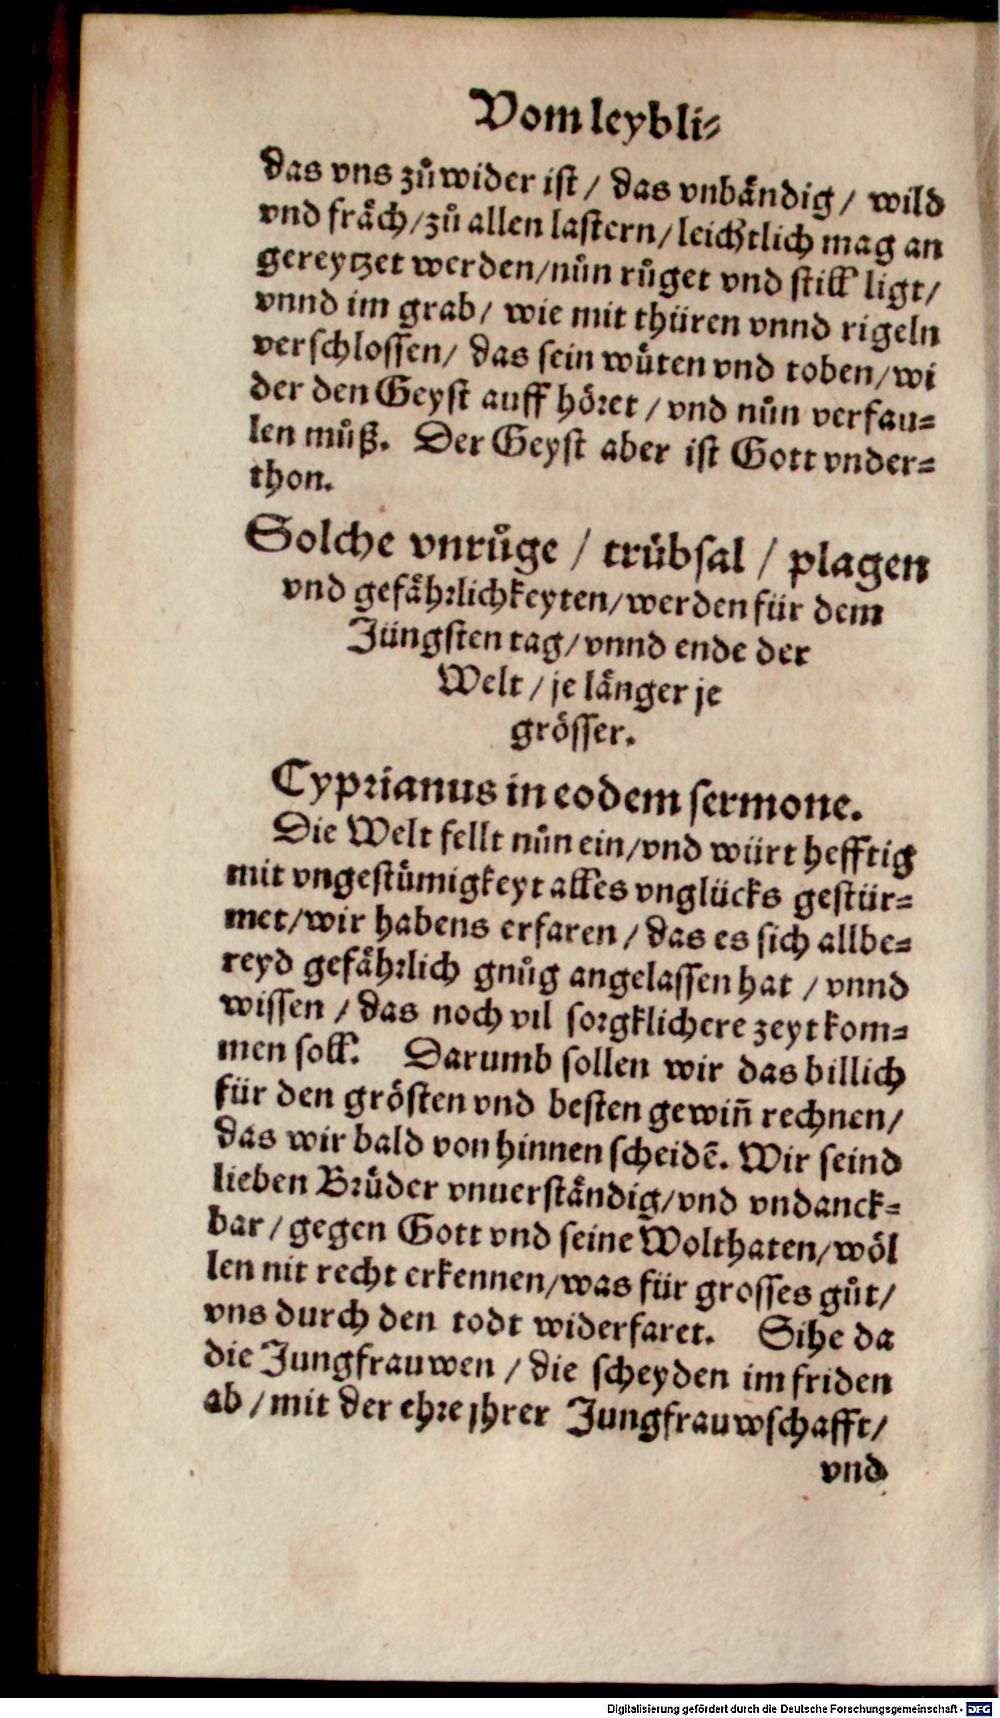 Vom leybli⸗
das vns zůwider ist / das vnbändig / wild
vnd fräch / zů allen lastern / leichtlich mag an
gereytzet werden / nůn růget vnd still ligt /
vnnd im grab / wie mit thüren vnnd rigeln
verschlossen / das sein wüten vnd toben / wi
der den Geyst auff höret / vnd nůn verfau⸗
len můß. Der Geyst aber ist Gott vnder⸗
thon.
Solche vnrůge / trübsal / plagen
vnd gefährlichkeyten / werden für dem
Jüngsten tag / vnnd ende der
Welt / je länger je
grösser.
Cyprianus in eodem sermone.
Die Welt fellt nůn ein / vnd würt hefftig
mit vngestümigkeyt alles vnglücks gestür⸗
met / wir habens erfaren / das es sich allbe⸗
reyd gefährlich gnůg angelassen hat / vnnd
wissen / das noch vil sorgklichere zeyt kom⸗
men soll. Darumb sollen wir das billich
für den grösten vnd besten gewiñ rechnen /
das wir bald von hinnen scheidē. Wir seind
lieben Brüder vnuerständig / vnd vndanck⸗
bar / gegen Gott vnd seine Wolthaten / wöl
len nit recht erkennen / was für grosses gůt /
vns durch den todt widerfaret. Sihe da
die Jungfrauwen / die scheyden im friden
ab / mit der ehre jhrer Jungfrauwschafft /
vnd
Digitalisierung gefördert durch die Deutsche Forschungsgemeinschaft - DFG